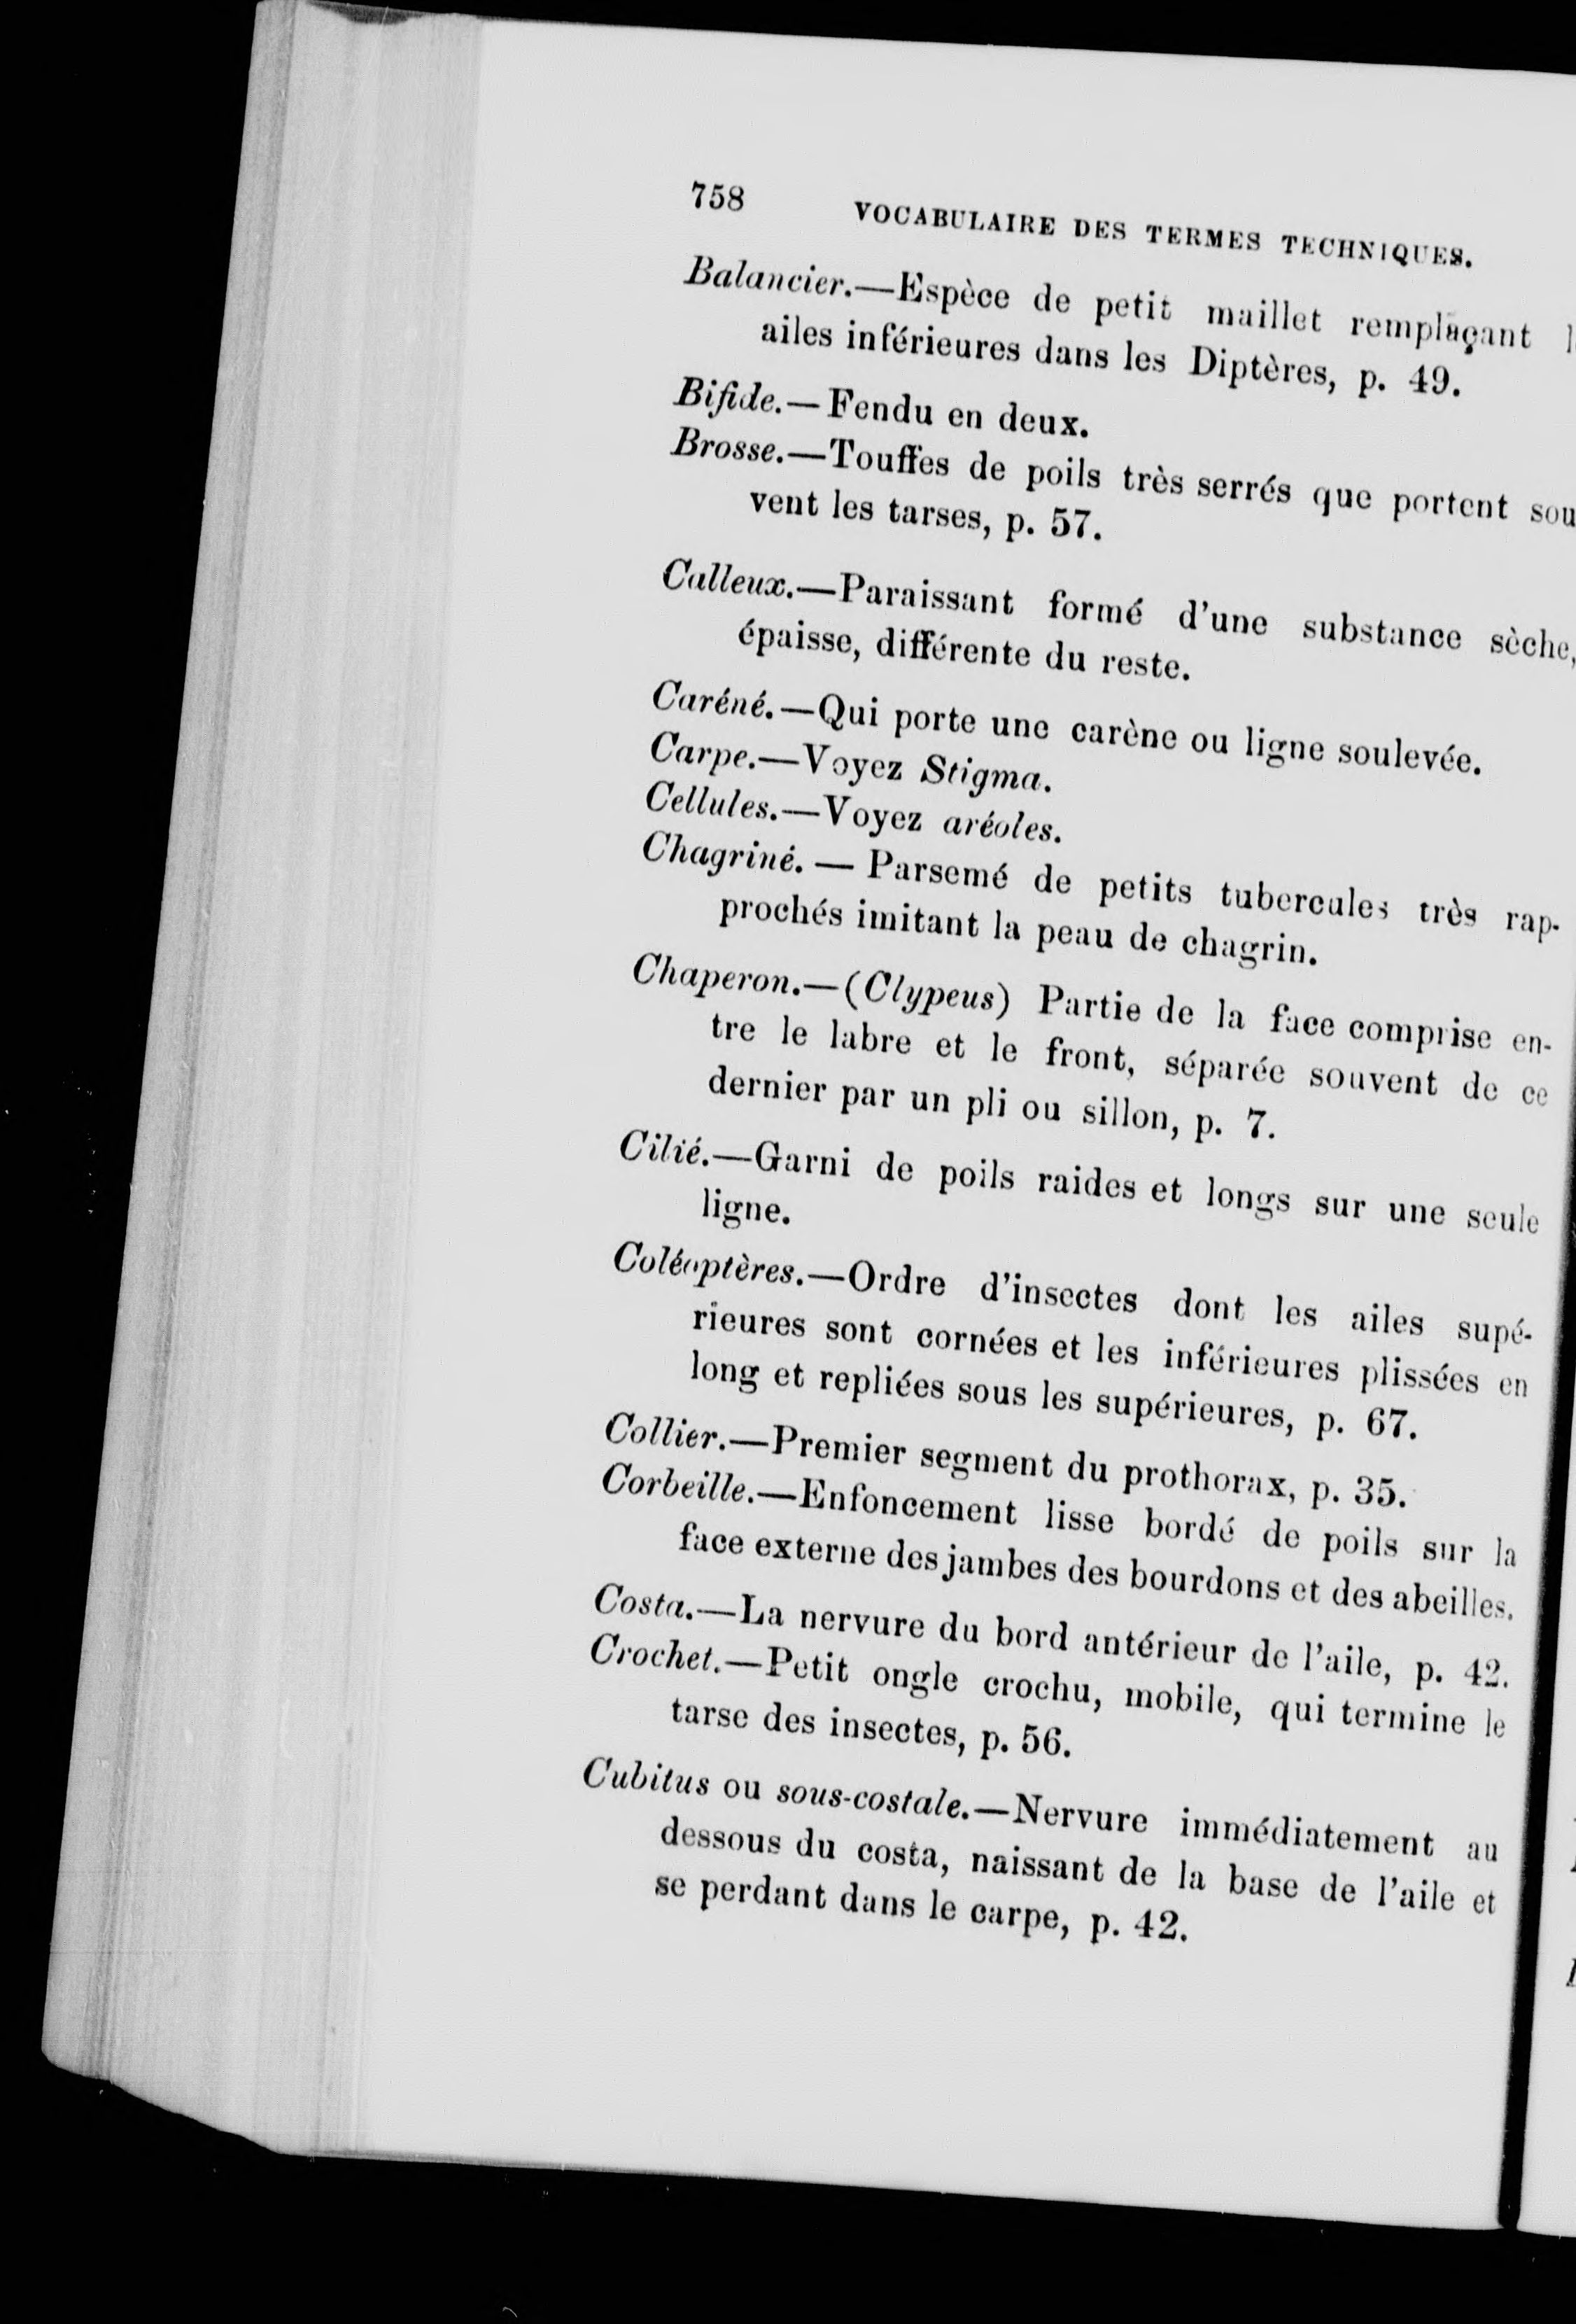 758 VOCABULAIRE DES TERMES TECHNIQUES.
Balancier.—Espèce de petit maillet remplaçant
ailes inférieures dans les Diptères, p. 49.
Bifide.—Fendu en deux.
Brosse.—Touffes de poils très serrés que portent sou
vent les tarses, p. 57.
Calleux.—Paraissant formé d'une substance sèche,
épaisse, différente du reste.
Caréné.—Qui porte une carène ou ligne soulevée.
Carpe.—Voyez Stigma.
Cellules.—Voyez aréoles.
Chagriné. — Parsemé de petits tubercules très rap-
prochés imitant la peau de chagrin.
Chaperon.—(Clypeus) Partie de la face comprise en-
tre le labre et le front, séparée souvent de ce
dernier par un pli ou sillon, p. 7.
Cilié.—Garni de poils raides et longs sur une seule
ligne.
Coléoptères.—Ordre d'insectes dont les ailes supé-
rieures sont cornées et les inférieures plissées en
long et repliées sous les supérieures, p. 67.
Collier.—Premier segment du prothorax, p. 35.
Corbeille.—Enfoncement lisse bordé de poils sur la
face externe des jambes des bourdons et des abeilles.
Costa.—La nervure du bord antérieur de l'aile, p. 42.
Crochet.—Petit ongle crochu, mobile, qui termine le
tarse des insectes, p. 56.
Cubitus ou sous-costale.—Nervure immédiatement au
dessous du costa, naissant de la base de l'aile et
se perdant dans le carpe, p. 42.